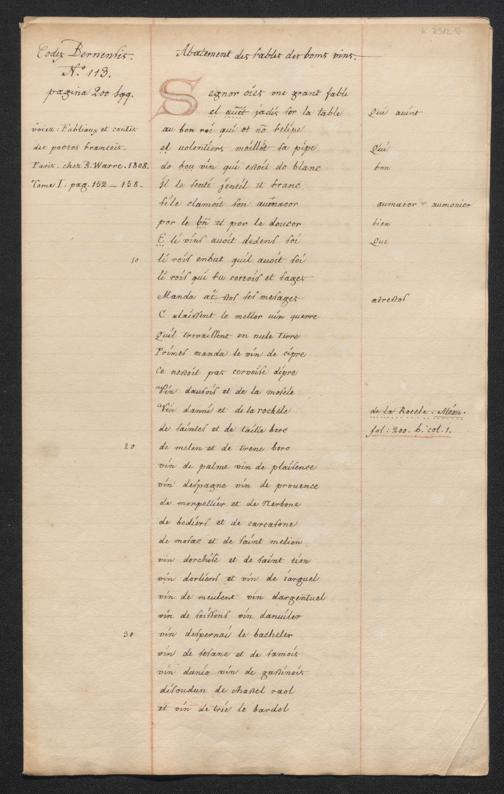 Codex Bernensis.
N.º 113.
pagina 200 sqq.
voiez: Fabliaux et contes
des poetes francois.
Paris. chez B. Warée. 1808.
Tome I. pag. 152 — 158.
Abatement des fables des boms vins.
Segnor oiez une grant fable
el auint jadis sor la table
au bon roi qui ot nō felipe
et volontiers moillot sa pipe
do bou vin qui estoit do blanc
Jl le senti jentil et franc
si le clamoit son aumacor
por le bñ et por le doucor
E li vins avoit dedens soi
10
li rois enbut quil avoit soi
li rois qui fu cortois et sages
Manda a tos ses mesages
C alaissent le mellor vin querre
Quil trovaissent en nule tirre
Primes manda le vin de cipre
Ce nestoit pas cervoise dipre
Vin dausois et de la mosele
Vin dannis et de la rochele
de saintes et de taille borc
20
de melen et de trene borc
vin de palme vin de plaisence
vin despagne vin de provence
de monpellier et de Nerbone
de bediers et de carcasone
de mosac et de saint melion
vin dorchise et de saint tion
vin dorliens et vin de iarguel
vin de meulent vin dargentuel
vin de soissons vin dauviler
30
vin despernai le bacheler
vin de sesane et de samois
vin danio vin de gastinois
disoudun de chastel raol
et vin de trie le bardol
Qui avint
Qui
bon
aumacor - aumonier
bien
Que
atrestos
de la Rocele. Méon.
fol: 200. b. col. 1.